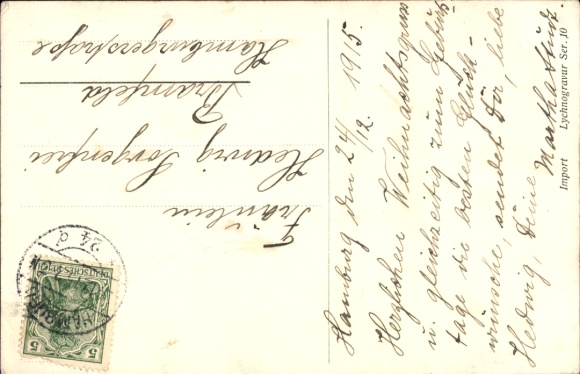 Hamburg den 24/12. 1915.
Herzlichen Weihnachtsgruss
u. gleichzeitig zum Geburts
tage die besten Glück-
wünsche, sendet Dir, liebe
Hedwig, Deine Martha
Fräulein
Hedwig Sorgenfrei
Bramfeld
Hamburgerstraße
Import Lychnogravur Ser. 10
DEUTSCHES REICH
5 5
HAMBURG